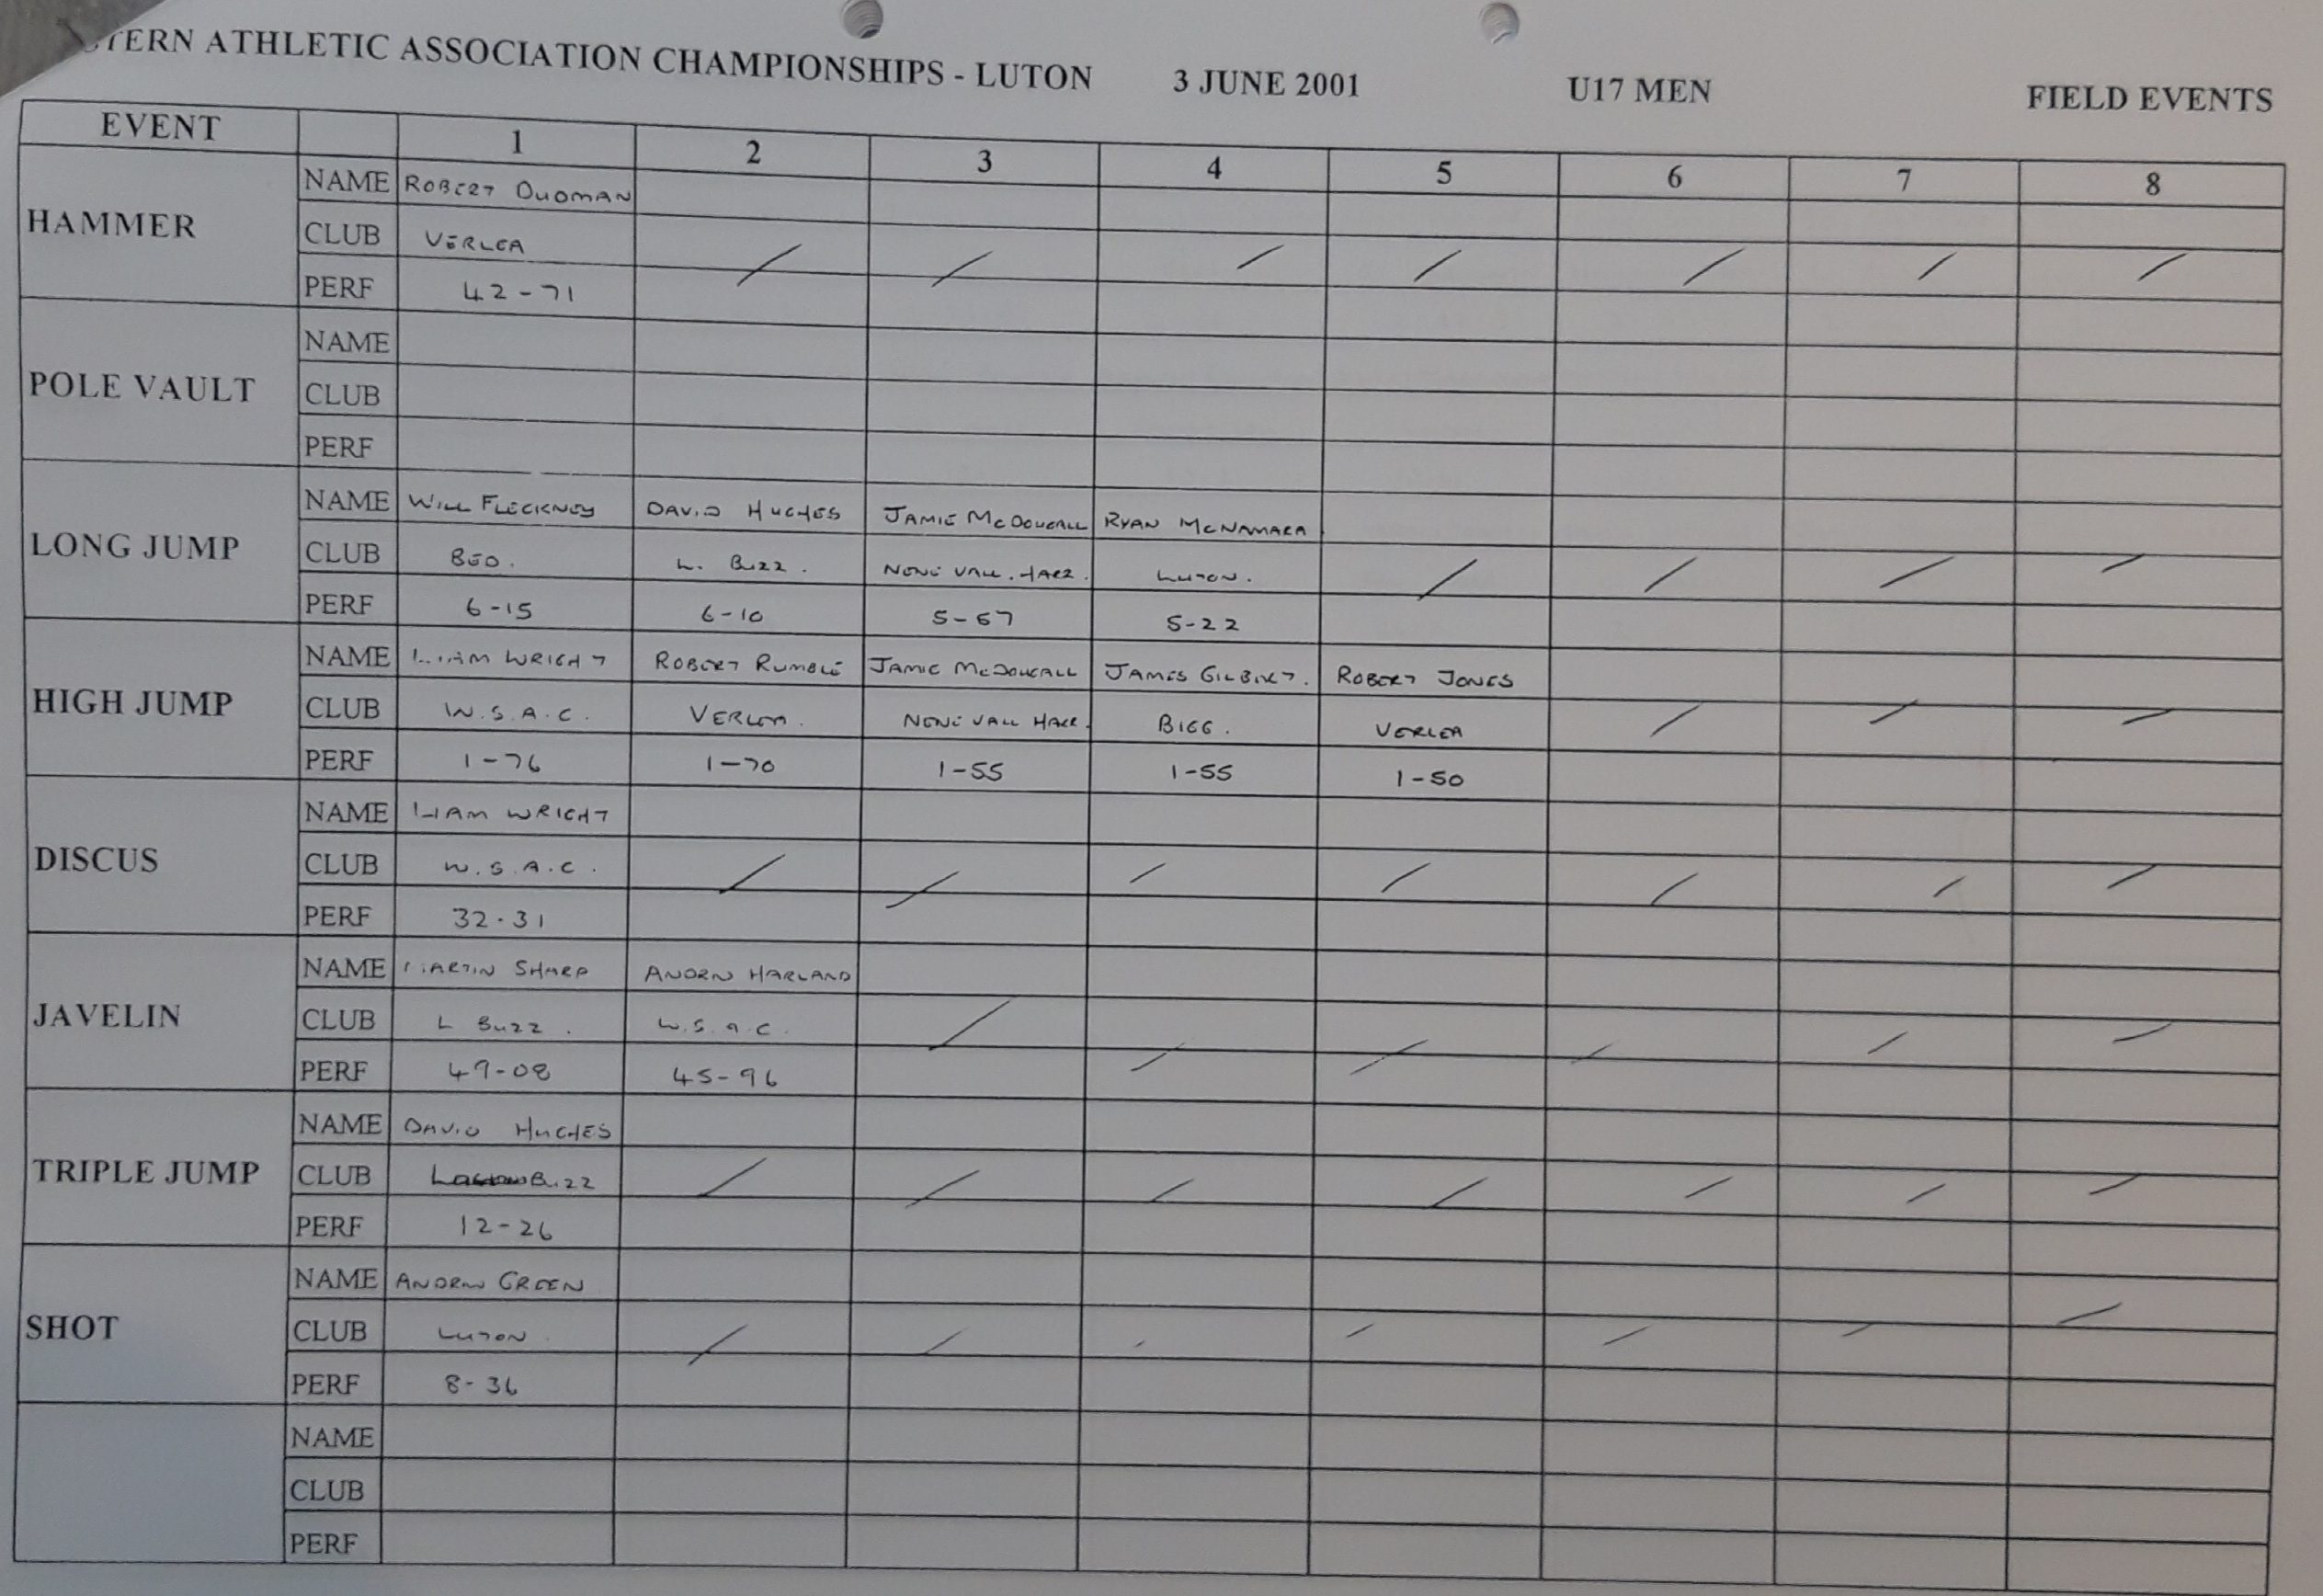 TERN ATHLETIC ASSOCIATION CHAMPIONSHIPS - LUTON 3 JUNE 2001 U17 MEN FIELD EVENTS
EVENT 1 2 3 4 5 6 7 8
HAMMER
NAME ROBERT
CLUB VERLEA
PERF 42-71
POLE VAULT
NAME
CLUB
PERF
LONG JUMP
NAME WILL FLECKNEY DAVID HUGHES JAMIE McDOUGALL RYAN McNAMARA
CLUB BED. L. BUZZ. NENE VALL. HARR. LUTON.
PERF 6-15 6-10 5-67 5-22
HIGH JUMP
NAME LIAM WRIGHT ROBERT RUMBLE JAMIE McDOUGALL JAMES GILBERT. ROBERT JONES
CLUB W.S.A.C. VERLEA. NENE VALL HARR. BIGG. VERLEA
PERF 1-76 1-70 1-55 1-55 1-50
DISCUS
NAME LIAM WRIGHT
CLUB W.S.A.C.
PERF 32.31
JAVELIN
NAME MARTIN SHARP ANDREW HARLAND
CLUB L BUZZ. W.S.A.C.
PERF 49-08 45-96
TRIPLE JUMP
NAME DAVID HUGHES
CLUB BUZZ
PERF 12-26
SHOT
NAME ANDREW GREEN
CLUB LUTON
PERF 8-36
NAME
CLUB
PERF